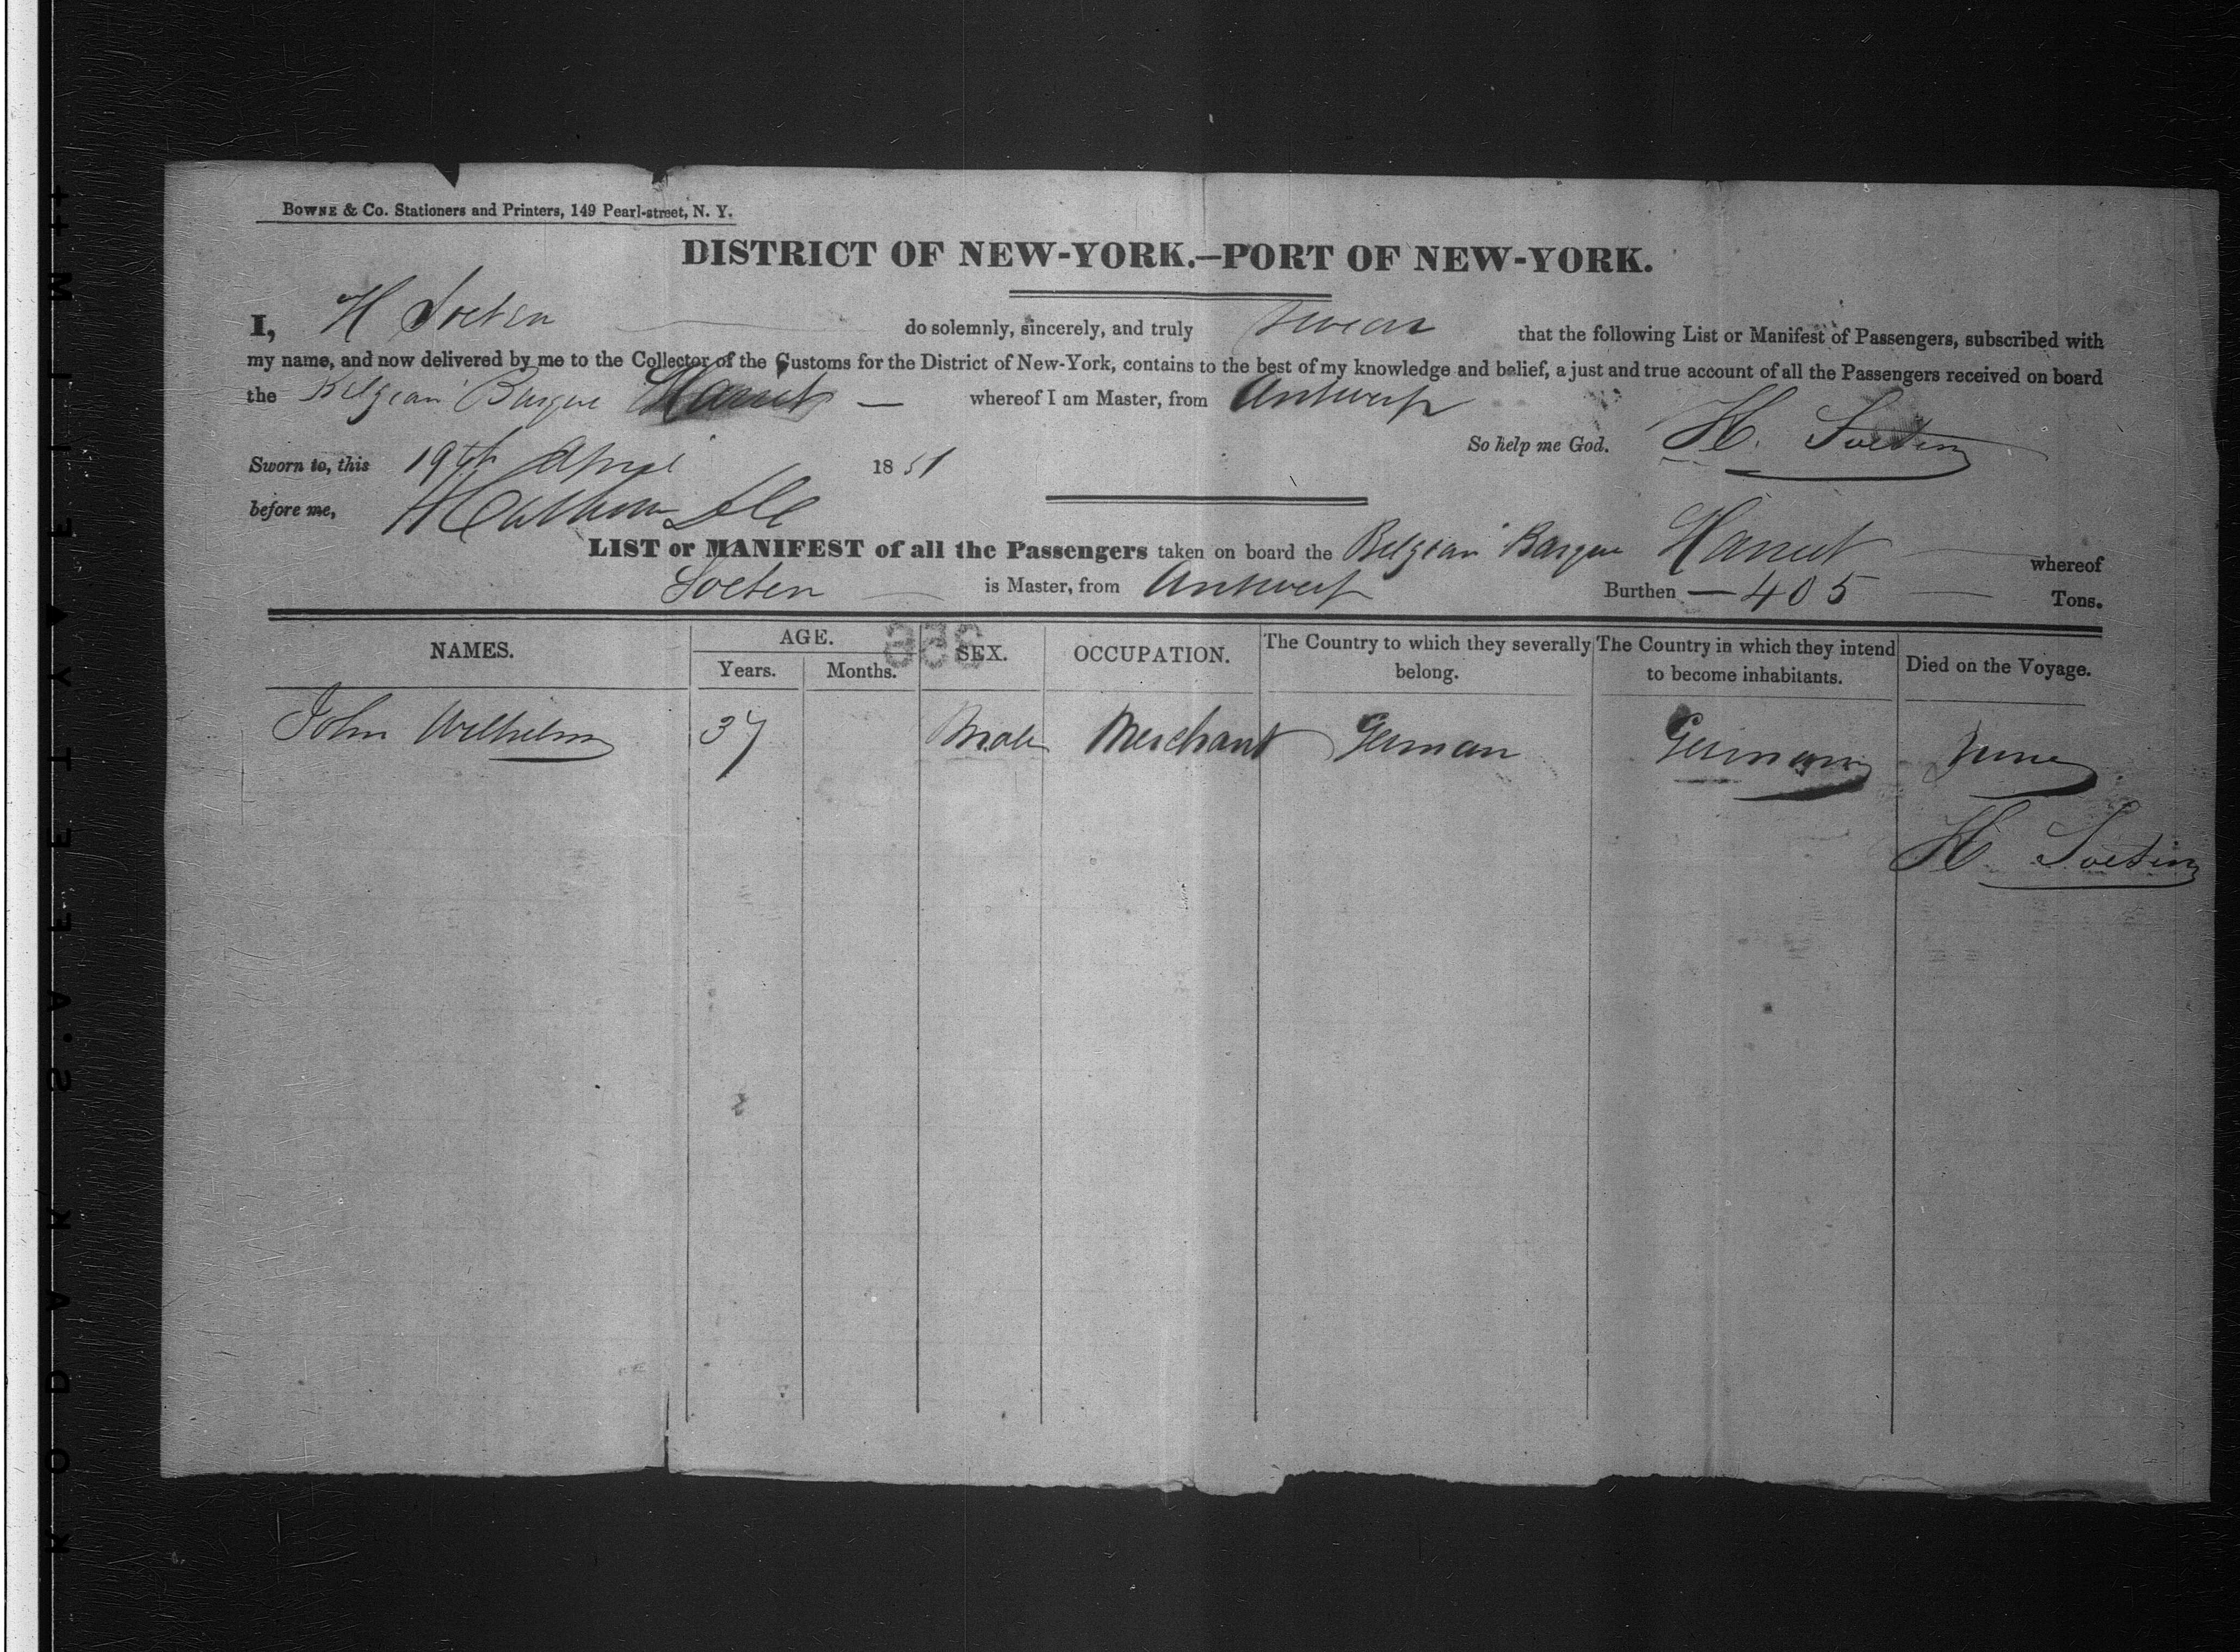 BOWNE & Co. Stationers and Printers, 149 Pearl-street, N. Y.
DISTRICT OF NEW-YORK.—PORT OF NEW-YORK.
I, H Soeten do solemnly, sincerely, and truly swear that the following List or Manifest of Passengers, subscribed with
my name, and now delivered by me to the Collector of the Customs for the District of New-York, contains to the best of my knowledge and belief, a just and true account of all the Passengers received on board
the Belgian Barque Harriet — whereof I am Master, from Antwerp
So help me God. H. Soeten
Sworn to, this 19th April 1851
before me,
LIST or MANIFEST of all the Passengers taken on board the Belgian Barque Harriet whereof
Soeten is Master, from Antwerp Burthen — 405 Tons.
NAMES. AGE. SEX. OCCUPATION. The Country to which they severally belong. The Country in which they intend to become inhabitants. Died on the Voyage.
Years. Months.
John Wilhelm 37 Male Merchant German German
H. Soeten
KODAK · S.A.FETY ▼ FILM ++